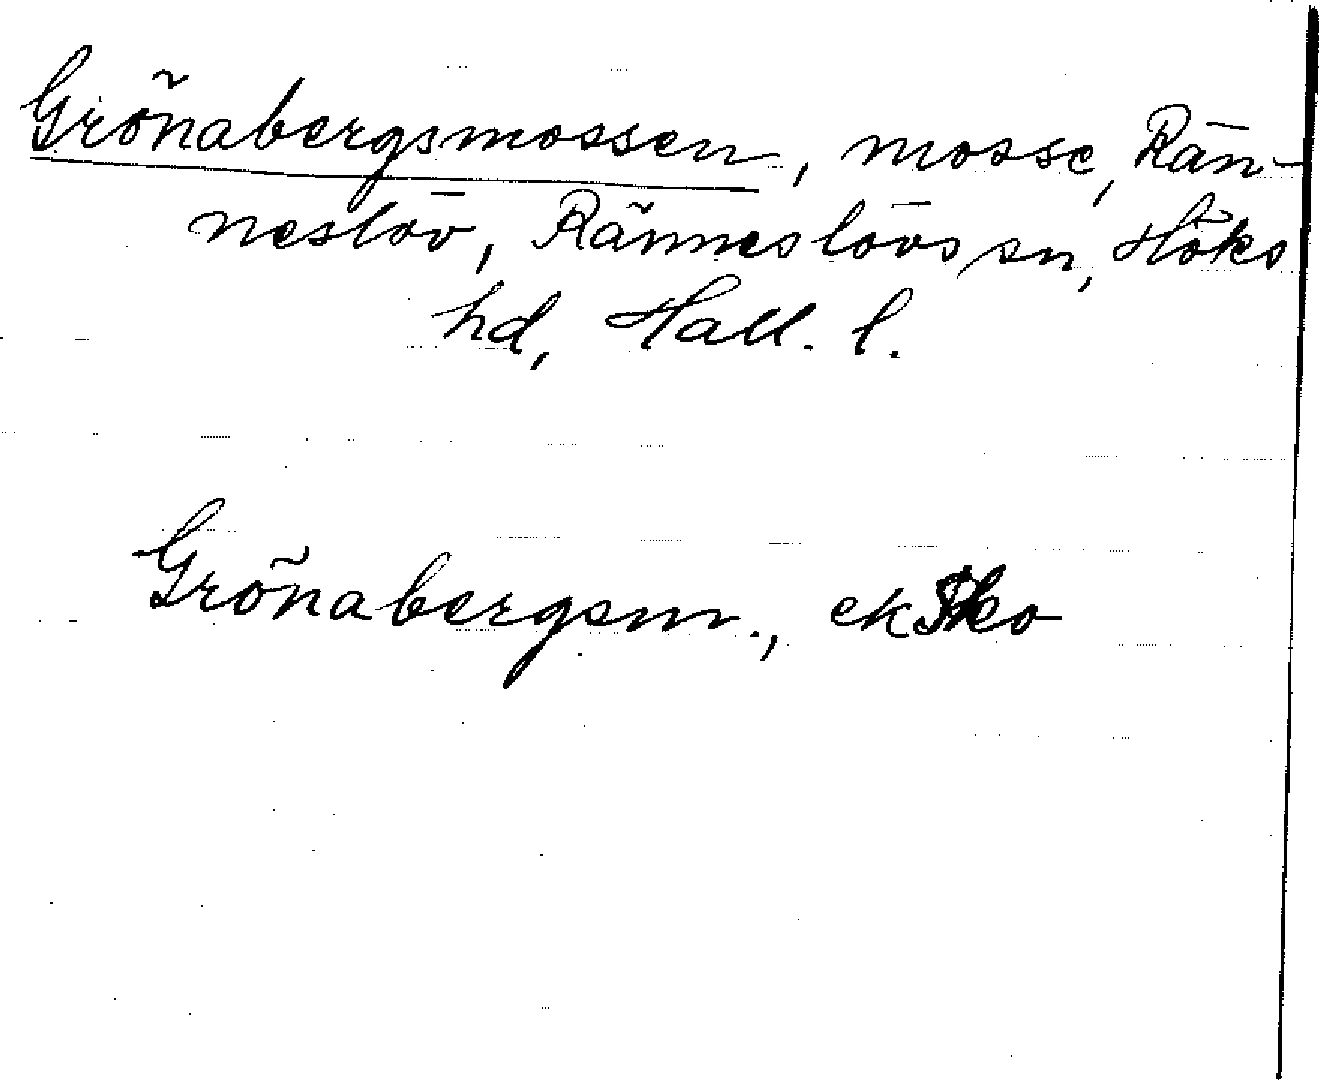 Grönabergsmossen, mosse, Rän-
neslöv, Ränneslövs sn, Höks
hd, Hall. l.
Grönabergsm.,